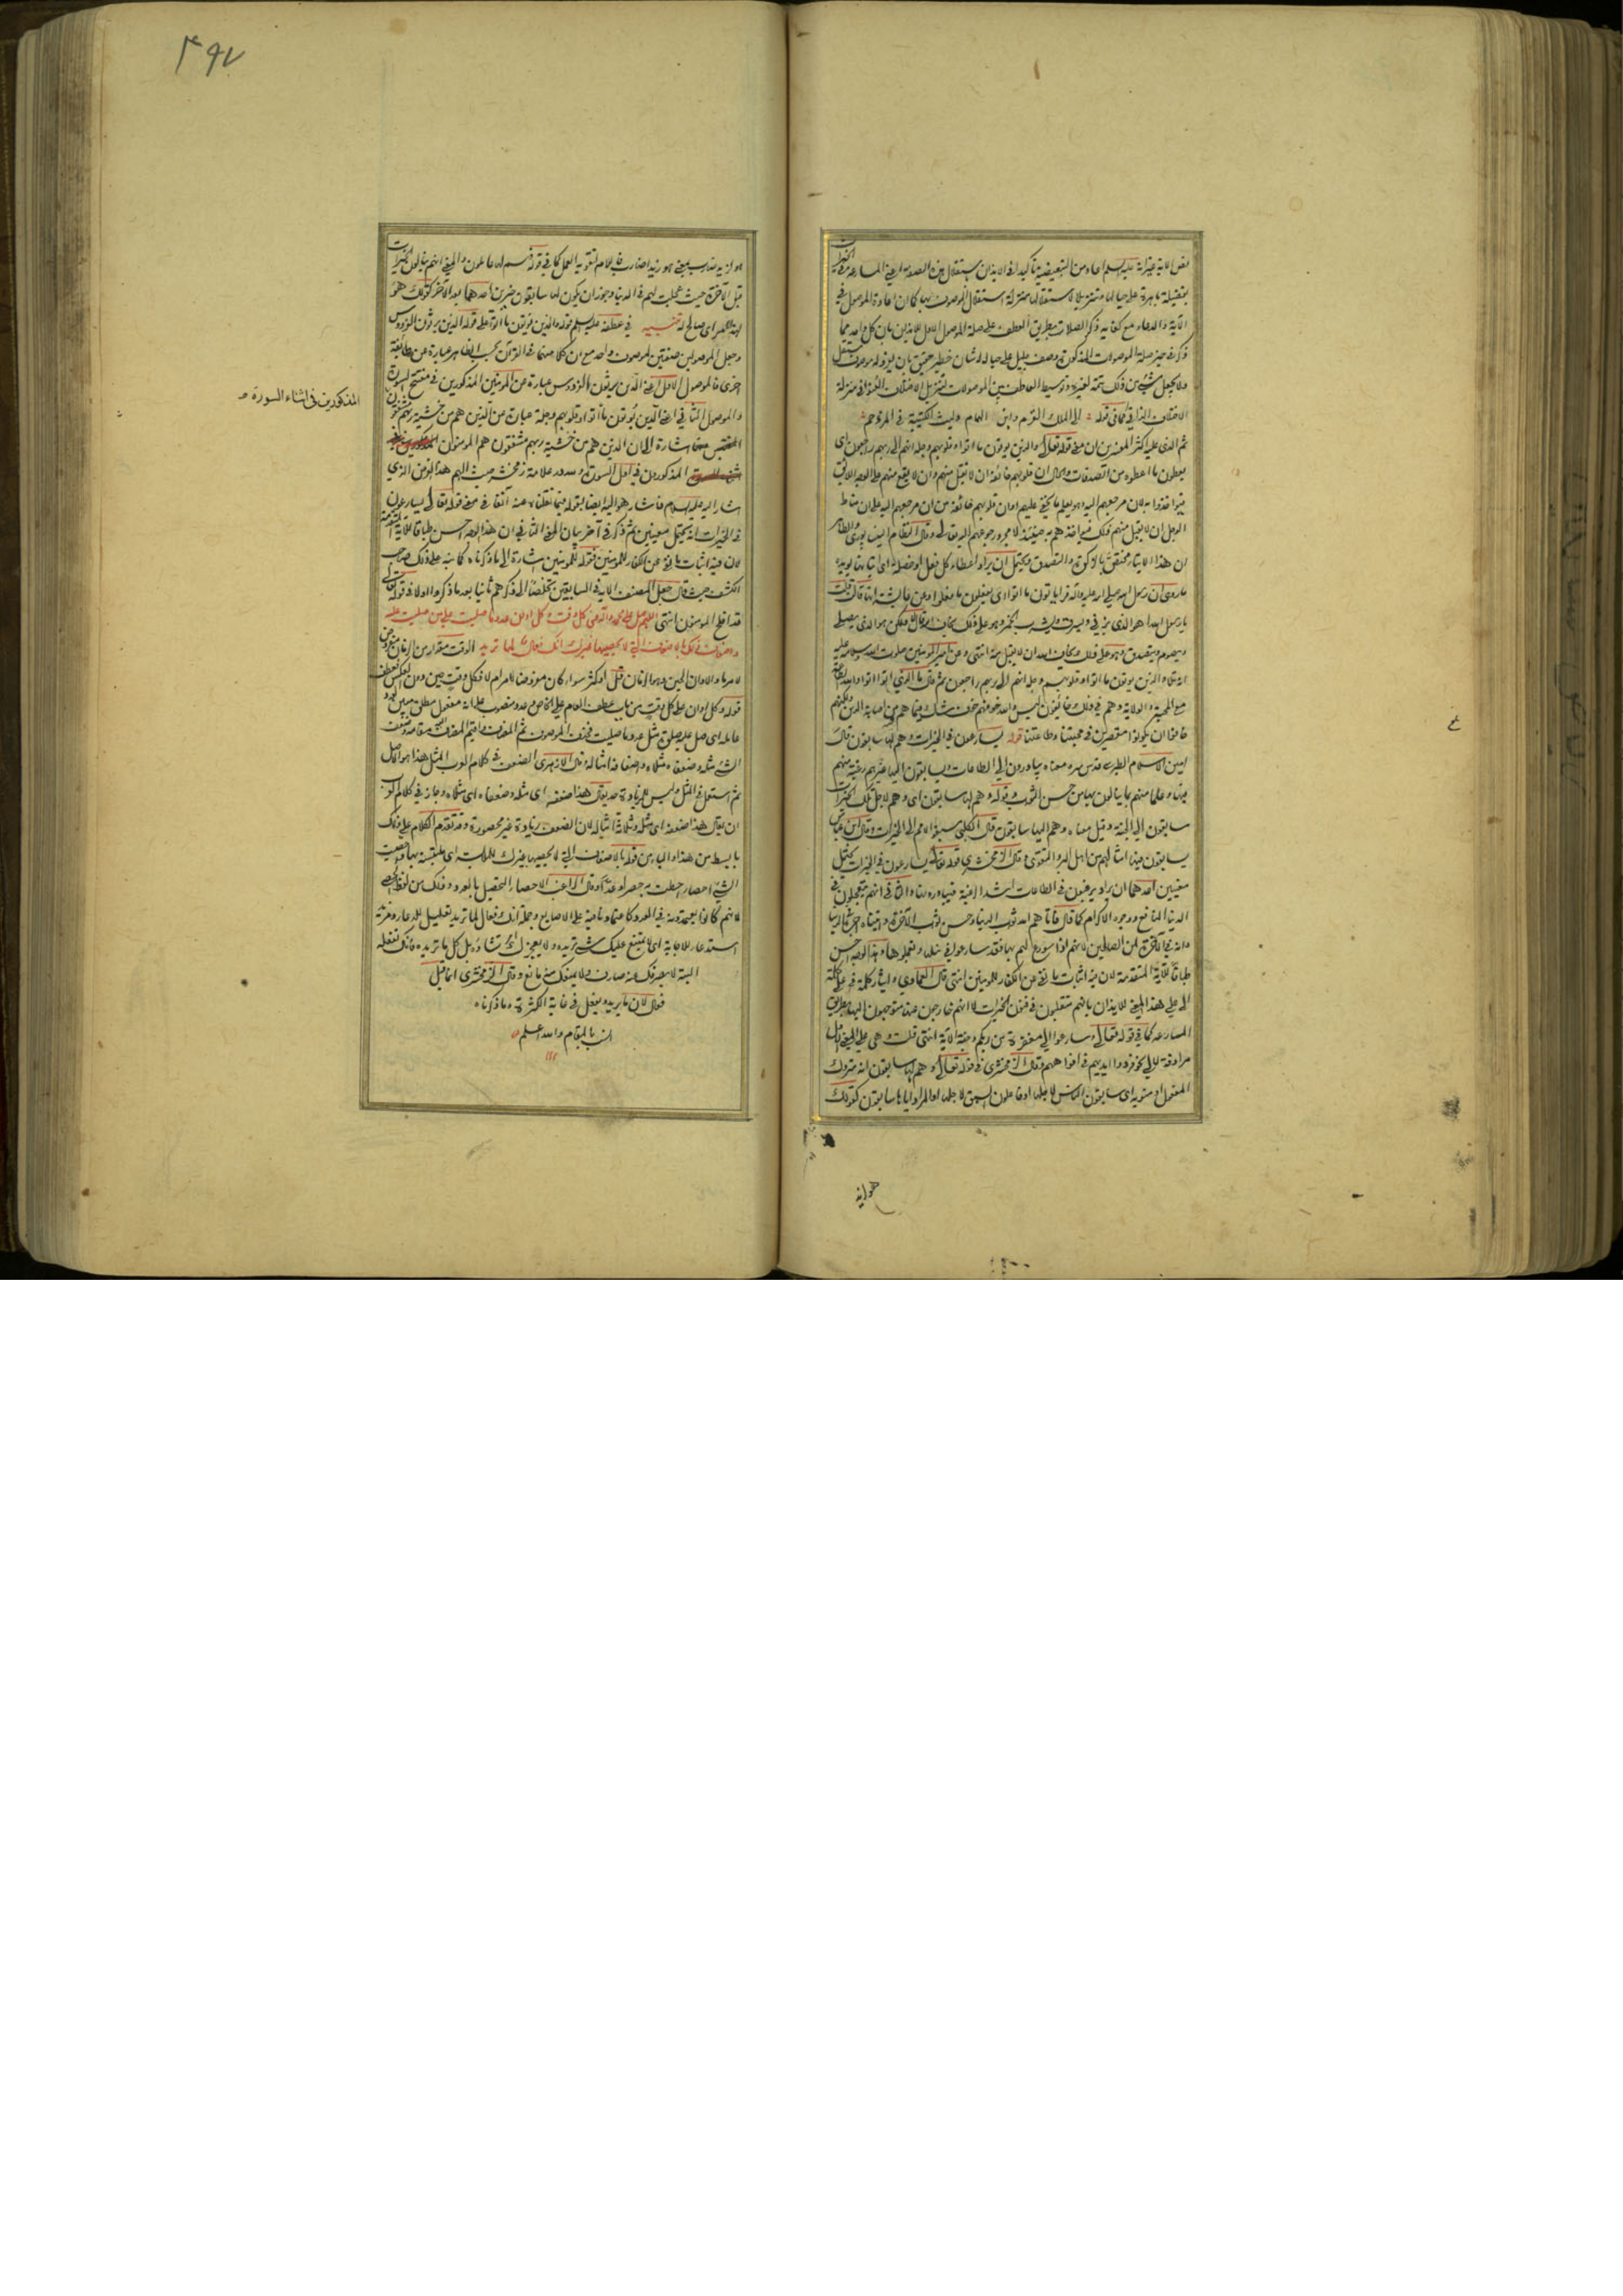 لفن الآية غير انه عليه السلم اعاد من التبعيضية تأكيدا في الايذان باستقلال هذه الصفة اعني المسارعة في الخيرات
بفضيلة باهرة على حيالها وتنزيلا لاستقلالها منزلة استقلال الموصوف بها كما ان اعادة الموصول في
الآية والدعاء مع كفاية ذكر الصلات بطريق العطف على صلة الموصول الاول للايذان بان كل واحد مما
ذكر في حيز صلة الموصولات المذكورة وصف جليل على حياله له شأن خطير حقيق بان يفرد له موصوف مستقل
ولا يجعل شيء من ذلك تتمة لغيره وتوسيط العاطف بين الموصولات لتنزيل الاختلاف العنواني منزلة
الاختلاف الذاتي كما في قوله الى الملك القرم وابن الهمام وليث الكتيبة في المزدحم
ثم الذي عليه اكثر المفسرين ان معنى قوله تعالى والذين يؤتون ما اتوا وقلوبهم وجلة انهم الى ربهم راجعون اي
يعطون ما اعطوه من الصدقات والحال ان قلوبهم خائفة ان لا يقبل منهم وان لا يقع منهم على الوجه اللائق
فيؤاخذوا به لان مرجعهم اليه وهو يعلم ما يخفى عليهم او ان قلوبهم خائفة من ان مرجعهم اليه على ان مناط
الوجل ان لا يقبل منهم ذلك فيؤاخذهم به حينئذ لا مجرد رجوعهم اليه تعالى وقال النظام النيسابوري والظاهر
ان هذا الايتاء مختص بالزكوة والتصدق ويحتمل ان يراد اعطاء كل فعل او خصلة اي اتيانها يؤيده
ما روي ان رسول الله صلى الله عليه وآله قرا يأتون ما اتوا اي يفعلون ما فعلوا وعن عايشة انها قالت قلت
يا رسول الله اهو الذي يزني ويسرق ويشرب الخمر وهو على ذلك يخاف الله قال لا ولكن هو الذي يصلي
ويصوم ويتصدق وهو على ذلك يخاف الله ان لا يقبل منه انتهى وعن امير المؤمنين صلوات الله وسلامه عليه
مع المحبة والولاية وهم في ذلك خائفون ليس والله خوفهم خوف شك فيما هم فيه من اصابة الدين ولكنهم
خافوا ان يكونوا مقصرين في محبتنا وطاعتنا قوله يسارعون في الخيرات وهم لها سابقون قال
امين الاسلام الطبرسي قدس سره معناه يبادرون الى الطاعات ويسابقون اليها رغبة منهم
فيها وعلما منهم بما ينالون بها من حسن الثواب وقوله وهم لها سابقون اي وهم لاجل تلك الخيرات
سابقون الى الجنة وقيل معناه وهم اليها سابقون قال الكلبي سبقوا الامم الى الخيرات وقال ابن عباس
يسابقون فيها امثالهم من اهل البر والتقوى وقال الزمخشري قوله تعالى يسارعون في الخيرات يحتمل
معنيين احدهما ان يراد يرغبون في الطاعات اشد الرغبة فيبادرونها والثاني انهم يتعجلون في
الدنيا المنافع ووجوه الاكرام كما قال فآتاهم الله ثواب الدنيا وحسن ثواب الآخرة وآتيناه اجره في الدنيا
وانه في الآخرة لمن الصالحين لانهم اذا سورع لهم بها فقد سارعوا في نيلها وتعجلوها وهذا الوجه احسن
طباقا للآية المتقدمة لان فيه اثبات ما نفي عن الكفار للمؤمنين انتهى قال العمادي وايثار كلمة في على كلمة
الى على هذا المعنى للايذان بانهم متقلبون في فنون الخيرات لا انهم خارجون عنها متوجهون اليها بطريق
المسارعة كما في قوله تعالى وسارعوا الى مغفرة من ربكم وجنة الآية انتهى قلت وهي على المعنى الاول
مرادفة لالى نحو فردوا ايديهم في افواههم وقال الزمخشري في قوله تعالى وهم لها سابقون انه متروك
المفعول او منويه اي سابقون الناس لاجلها او فاعلون السبق لاجلها او المراد اياها سابقون كقولك
هو لزيد
٤٩٧
هو لزيد ضارب بمعنى هو زيدا ضارب فاللام لتقوية العمل كما في قوله هم لها عاملون والمعنى انهم ينالون الخيرات
قبل الآخرة حيث عجلت لهم في الدنيا ويجوز ان يكون لها سابقون خبرين احدهما بعد الآخر كقولك هو
لهذا الامر اي صالح له تنبيه في عطفه عليه السلم قوله والذين يؤتون ما اتوا على قوله الذين يرثون الفردوس
وجعل الموصولين صفتين لموصوف واحد مع ان كلا منهما في القرآن بحسب الظاهر عبارة عن طائفة
اخرى فالموصول الاول اعني الذين يرثون الفردوس عبارة عن المؤمنين المذكورين في مفتتح السورة
والموصول الثاني اعني الذين يؤتون ما اتوا وقلوبهم وجلة عبارة عن الذين هم من خشية ربهم مشفقون
المذكورين في اثناء السورة
اشارة الى ان الذين هم من خشية ربهم مشفقون هم المؤمنون
المذكورون في اول السورة وسدد علامة زمخشر حيث الهم هذا الغرض الذي
اشار اليه عليه السلام فاشار هو اليه ايضا بقوله فيما نقلناه عنه آنفا في معنى قوله تعالى يسارعون
في الخيرات انه يحتمل معنيين ثم ذكر في آخر بيان المعنى الثاني ان هذا الوجه احسن طباقا للآية المتقدمة
لان فيه اثبات ما نفي عن الكفار للمؤمنين فقوله للمؤمنين اشارة الى ما ذكرناه كما نبه على ذلك صاحب
الكشف حيث قال جعل المصنف الآية في السابقين تخلصا الى ذكرهم ثانيا بعد ما ذكروا اولا في قوله تعالى
قد افلح المؤمنون انتهى اللهم صل على محمد وآله في كل وقت وكل اوان عدد ما صليت على من صليت عليه
واضعاف ذلك بالاضعاف التي لا يحصيها غيرك انك فعال لما تريد الوقت مقدار من الزمان مفروض
لامر ما والاوان الحين وهو الزمان قل او كثر سواء كان مفروضا لامر ام لا فكل وقت حين دون العكس فعطف
قوله وكل اوان على كل وقت من باب عطف العام على الخاص وعدد منصوب على انه مفعول مطلق مبين لعدد
عامله اي صل عليه صلوة مثل عدد ما صليت فحذف الموصوف ثم المضاف واقيم المضاف اليه مقامه وضعف
الشيء مثله وضعفاه مثلاه واضعافه امثاله وقال الازهري الضعف في كلام العرب المثل هذا هو الاصل
ثم استعمل في المثل وليس للزيادة حد يقال هذا ضعفه اي مثله وضعفاه اي مثلاه وجاز في كلام العرب
ان يقال هذا ضعفه اي مثله وثلاثة امثاله لان الضعف زيادة غير محصورة وقد تقدم الكلام على ذلك
بابسط من هذا والباء من قوله بالاضعاف التي لا يحصيها غيرك للملابسة اي ملتبسة بها واحصيت
الشيء احصاء احطت به حصرا وعدا وقال الراغب الاحصاء التحصيل بالعدد وذلك من لفظ الحصى
لانهم كانوا يعتمدونه في العدد كاعتمادنا فيه على الاصابع وجملة انك فعال لما تريد تعليل للدعاء ومزيد
استدعاء للاجابة اي لا يمتنع عليك شيء تريده ولا يعجزك امر تشاؤه بل كل ما تريده فانك تفعله
البتة لا يصرفك عنه صارف ولا يمنعك منه مانع وقال الزمخشري انما قيل
فعال لان ما يريد ويفعل في غاية الكثرة وما ذكرناه
انسب بالمقام والله اعلم